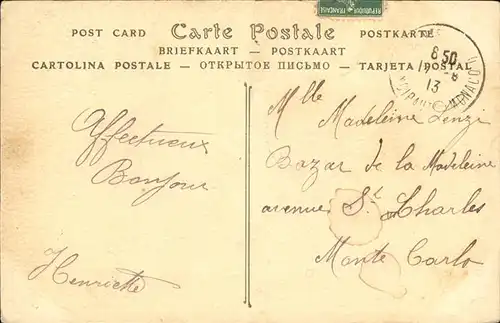 REPUBLIQUE FRANÇAISE
POST CARD Carte Postale POSTKARTE
BRIEFKAART — POSTKAART
CARTOLINA POSTALE — ОТКРЫТОЕ ПИСЬМО — TARJETA POSTAL
8 50
7 - 8
13
MONACO
Affectueux
Bonjour
Henriette
Mlle
Madeleine Lenzi
Bazar de la Madeleine
avenue St Charles
Monte Carlo